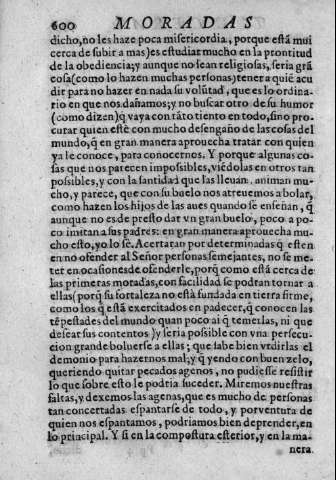 600 MORADAS
dicho, no les haze poca misericordia, porque està mui
cerca de subir a mas) es estudiar mucho en la prontitud
de la obediencia; y aunque no sean religiosas, seria grã
cosa (como lo hazen muchas personas) tener a quiẽ acu
dir para no hazer en nada su volũtad, que es lo ordina-
rio en que nos dañamos; y no buscar otro de su humor
(como dizen) q̃ vaya con tãto tiento en todo, sino pro-
curar quien estè con mucho desengaño de las cosas del
mundo, q̃ en gran manera aprouecha tratar con quien
ya le conoce, para conocernos. Y porque algunas co-
sas que nos parecen impossibles, viẽdolas en otros tan
possibles, y con la santidad que las lleuan, animan mu-
cho, y parece, que con su buelo nos atreuemos a bolar,
como hazen los hijos de las aues quando se enseñan, q̃
aunque no es de presto dar vn gran buelo, poco a po-
co imitan a sus padres: en gran manera aprouecha mu-
cho esto, yo lo sè. Acertaran por determinadas q̃ esten
en no ofender al Señor personas semejantes, no se me-
ter en ocasiones de ofenderle, porq̃ como està cerca de
las primeras moradas, con facilidad se podran tornar a
ellas (porq̃ su fortaleza no està fundada en tierra firme,
como los q̃ està exercitados en padecer, q̃ conocen las
tẽpestades del mundo quan poco ai q̃ temerlas, ni que
desear sus contentos) y seria possible con vna persecu-
cion grande boluerse a ellas; que sabe bien vrdirlas el
demonio para hazernos mal; y q̃ yendo con buen zelo,
queriendo quitar pecados agenos, no pudiesse resistir
lo que sobre esto le podria suceder. Miremos nuestras
faltas, y dexemos las agenas, que es mucho de personas
tan concertadas espantarse de todo, y por ventura de
quien nos espantamos, podriamos bien deprender, en
lo principal. Y si en la compostura esterior, y en la ma-
nera